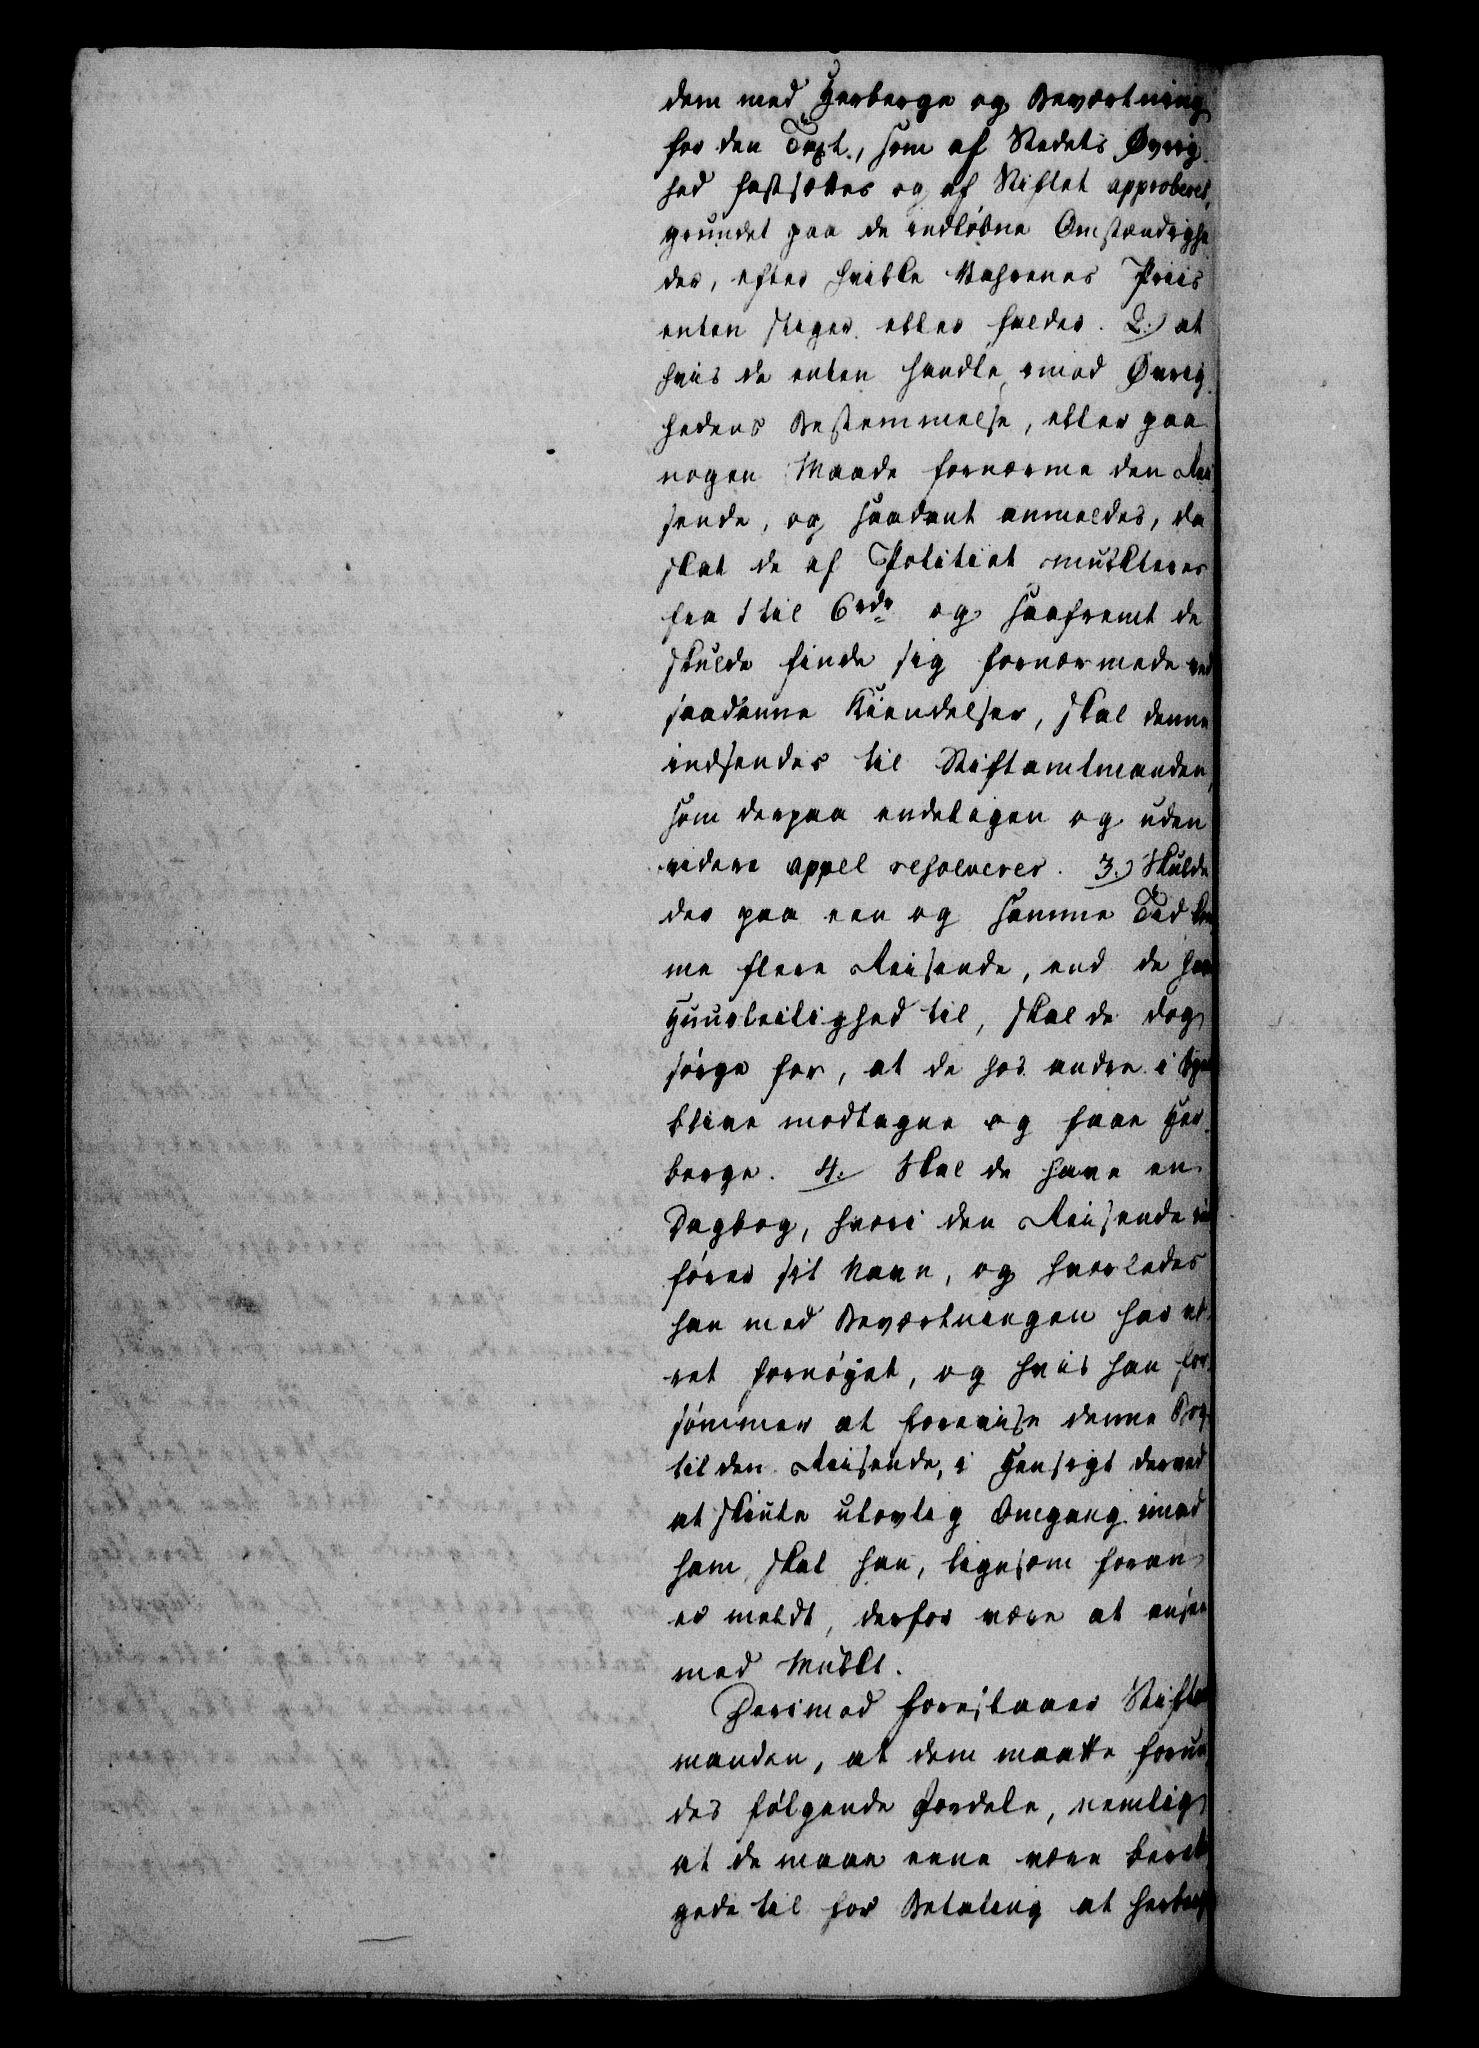 dem med Herberge og Beværtning
for den Taxt, som af Stedets Øvrig-
hed fastsættes og af Stiftet approberet,
grundet paa de indløbne Omstændighe
der, efter hvilke Vahrenes Priis
enten stiger eller falder. 2.) at
hvis de enten handle imod Øvrig-
hedens Bestemmelse, eller paa
nogen Maade fornærme den Rei
sende, og saadant anmeldes, da
skal de af Politiet mulkteres
fra 1 til 6 rdr og saafremt de
skulde finde sig fornærmede ved
saadanne Kiendelser, skal denne
indsendes til Stiftamtmanden,
som derpaa endeligen og uden
videre appel resolverer. 3.) Skulde
der paa een og samme Tid kom
me flere Reisende, end de have
Huusleilighed til, skal de dog
sørge for, at de hos andre i Byen
blive modtagne og faae Her-
berge. 4. Skal de have en
Dagbog, hvori den Reisende ind
fører sit Navn, og hvorledes
han med Beværtningen har væ-
ret fornøyet, og hvis han for-
sømmer at forevise denne Bog
til den Reisende, i Hensigt derved
at skiule ulovlig Omgang imod
ham, skal han, ligesom foran
er meldt, derfor være at ansee
med Mulkt.
Derimod forestaaer Stiftamt
manden, at dem maatte forun
des følgende Fordele, nemlig
at de maae ene være beretti
gede til for Betaling at herberge